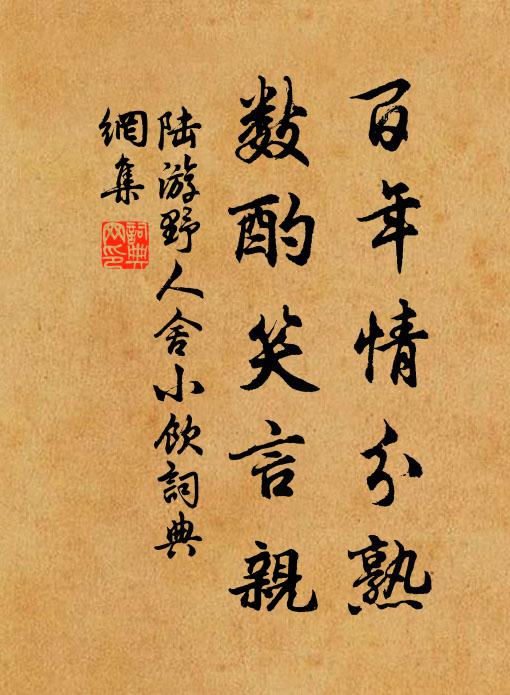 百年情分熟
数酌笑言親
陆游野人舍小飲詞典
網集
詞典
网印